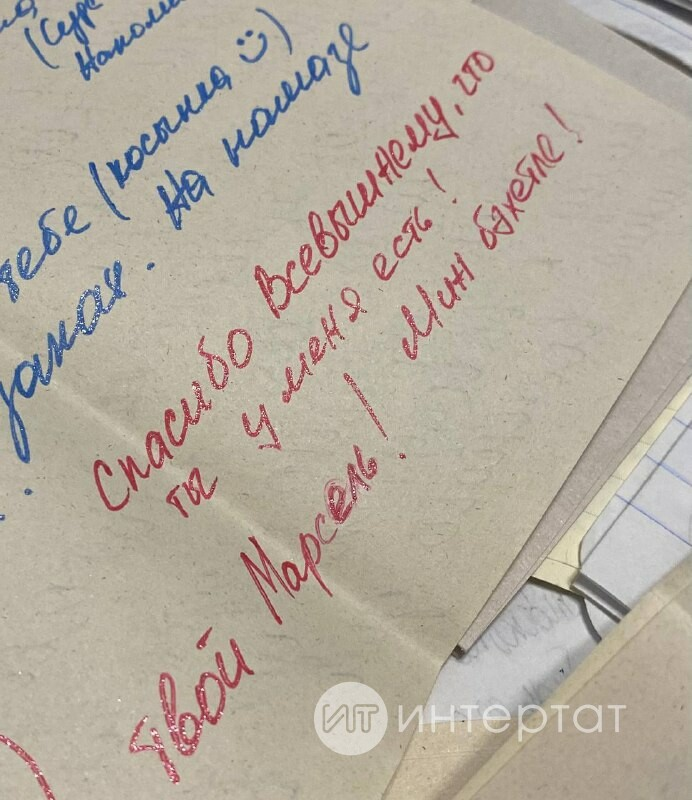 (Сура
тебе (косынка ☺)
На намазе
Спасибо Всевышнему, что
ты у меня есть!
Мин бәхетле!
Твой Марсель!
ИТ ИНТЕРТАТ